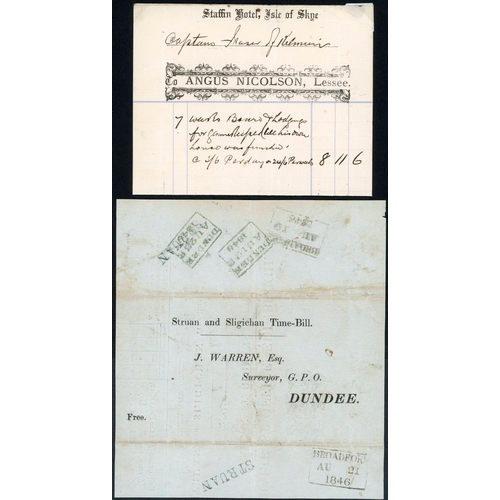 Staffin Hotel, Isle of Skye
Captain Fraser of Kilmuir
To ANGUS NICOLSON, Lessee.
7 weeks Board & Lodging
for till his own
house was finished
@ 3/6 Per day or 24/6 Per week 8 11 6
STRUAN
DUNDEE
AU
1846
DUNDEE
AU
1846
BROADFORD
AU
1846
Struan and Sligichan Time-Bill.
J. WARREN, Esq.
Surveyor, G. P. O.
DUNDEE.
Free.
STRUAN
BROADFORD
AU 21
1846